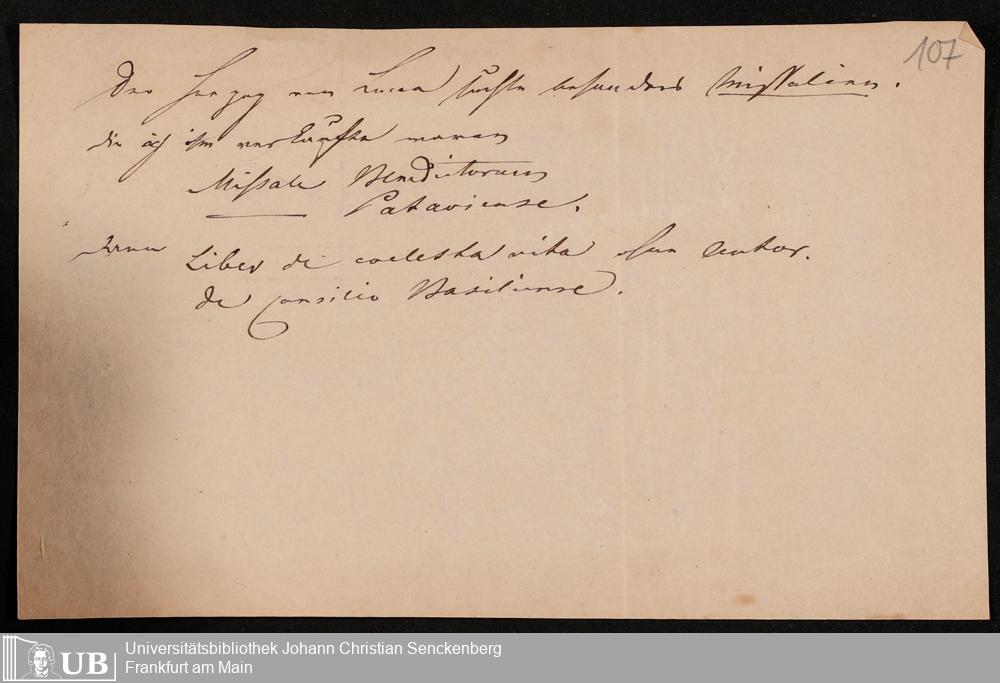 107
Der Herzog von Lucca suchte besonders Missalien.
die ich ihm verkaufte waren
Missale Benedictorum
Pataviense.
ferner Liber de coelesta vita ohne Autor.
de Consilio Basiliense.
UB Universitätsbibliothek Johann Christian Senckenberg
Frankfurt am Main